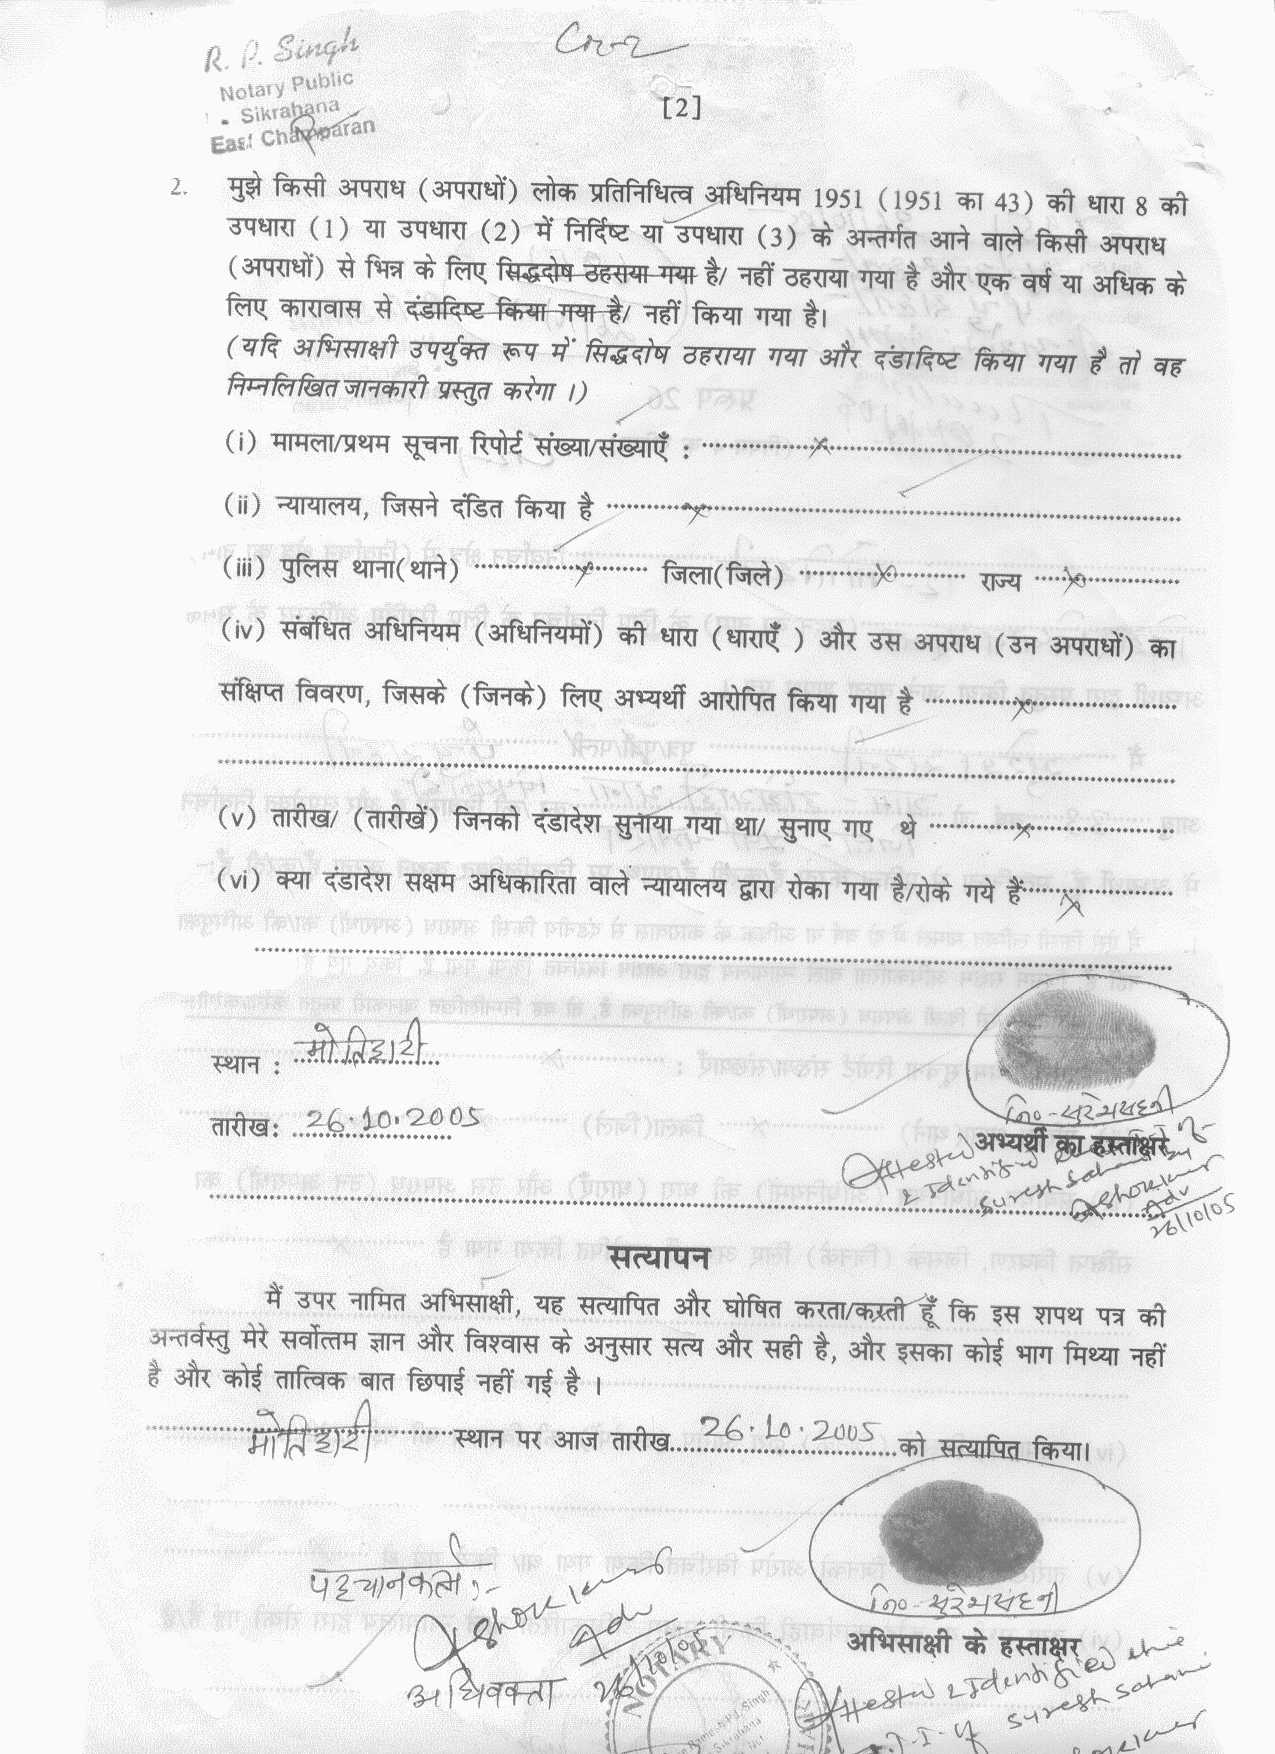 R. P. Singh
Notary Public
Sikrahana
East Champaran
[2]
2. मुझे किसी अपराध (अपराधों) लोक प्रतिनिधित्व अधिनियम 1951 (1951 का 43) की धारा 8 की
उपधारा (1) या उपधारा (2) में निर्दिष्ट या उपधारा (3) के अन्तर्गत आने वाले किसी अपराध
(अपराधों) से भिन्न के लिए सिद्धदोष ठहराया गया है/ नहीं ठहराया गया है और एक वर्ष या अधिक के
लिए कारावास से दंडादिष्ट किया गया है/ नहीं किया गया है।
(यदि अभिसाक्षी उपर्युक्त रूप में सिद्धदोष ठहराया गया और दंडादिष्ट किया गया है तो वह
निम्नलिखित जानकारी प्रस्तुत करेगा ।)
(i) मामला/प्रथम सूचना रिपोर्ट संख्या/संख्याएँ : x
(ii) न्यायालय, जिसने दंडित किया है x
(iii) पुलिस थाना(थाने) x जिला(जिले) x राज्य x
(iv) संबंधित अधिनियम (अधिनियमों) की धारा (धाराएँ ) और उस अपराध (उन अपराधों) का
संक्षिप्त विवरण, जिसके (जिनके) लिए अभ्यर्थी आरोपित किया गया है x
(v) तारीख/ (तारीखें) जिनको दंडादेश सुनाया गया था/ सुनाए गए थे x
(vi) क्या दंडादेश सक्षम अधिकारिता वाले न्यायालय द्वारा रोका गया है/रोके गये हैं x
स्थान : मोतिहारी
नि०-सुरेश सहनी
तारीख: 26.10.2005
अभ्यर्थी का हस्ताक्षर
Attested
& Identified
Suresh Sahani by
Ashok Kumar
Adv
26/10/05
सत्यापन
मैं उपर नामित अभिसाक्षी, यह सत्यापित और घोषित करता/करती हूँ कि इस शपथ पत्र की
अन्तर्वस्तु मेरे सर्वोत्तम ज्ञान और विश्वास के अनुसार सत्य और सही है, और इसका कोई भाग मिथ्या नहीं
है और कोई तात्विक बात छिपाई नहीं गई है ।
मोतिहारी स्थान पर आज तारीख 26.10.2005 को सत्यापित किया।
नि०-सुरेश सहनी
अभिसाक्षी के हस्ताक्षर
पहचानकर्ता :-
Ashok Kumar
Adv
26/10/05
अधिवक्ता
NOTARY
Sikrahana
Attested & Identified the
L.T.I. of Suresh Sahani